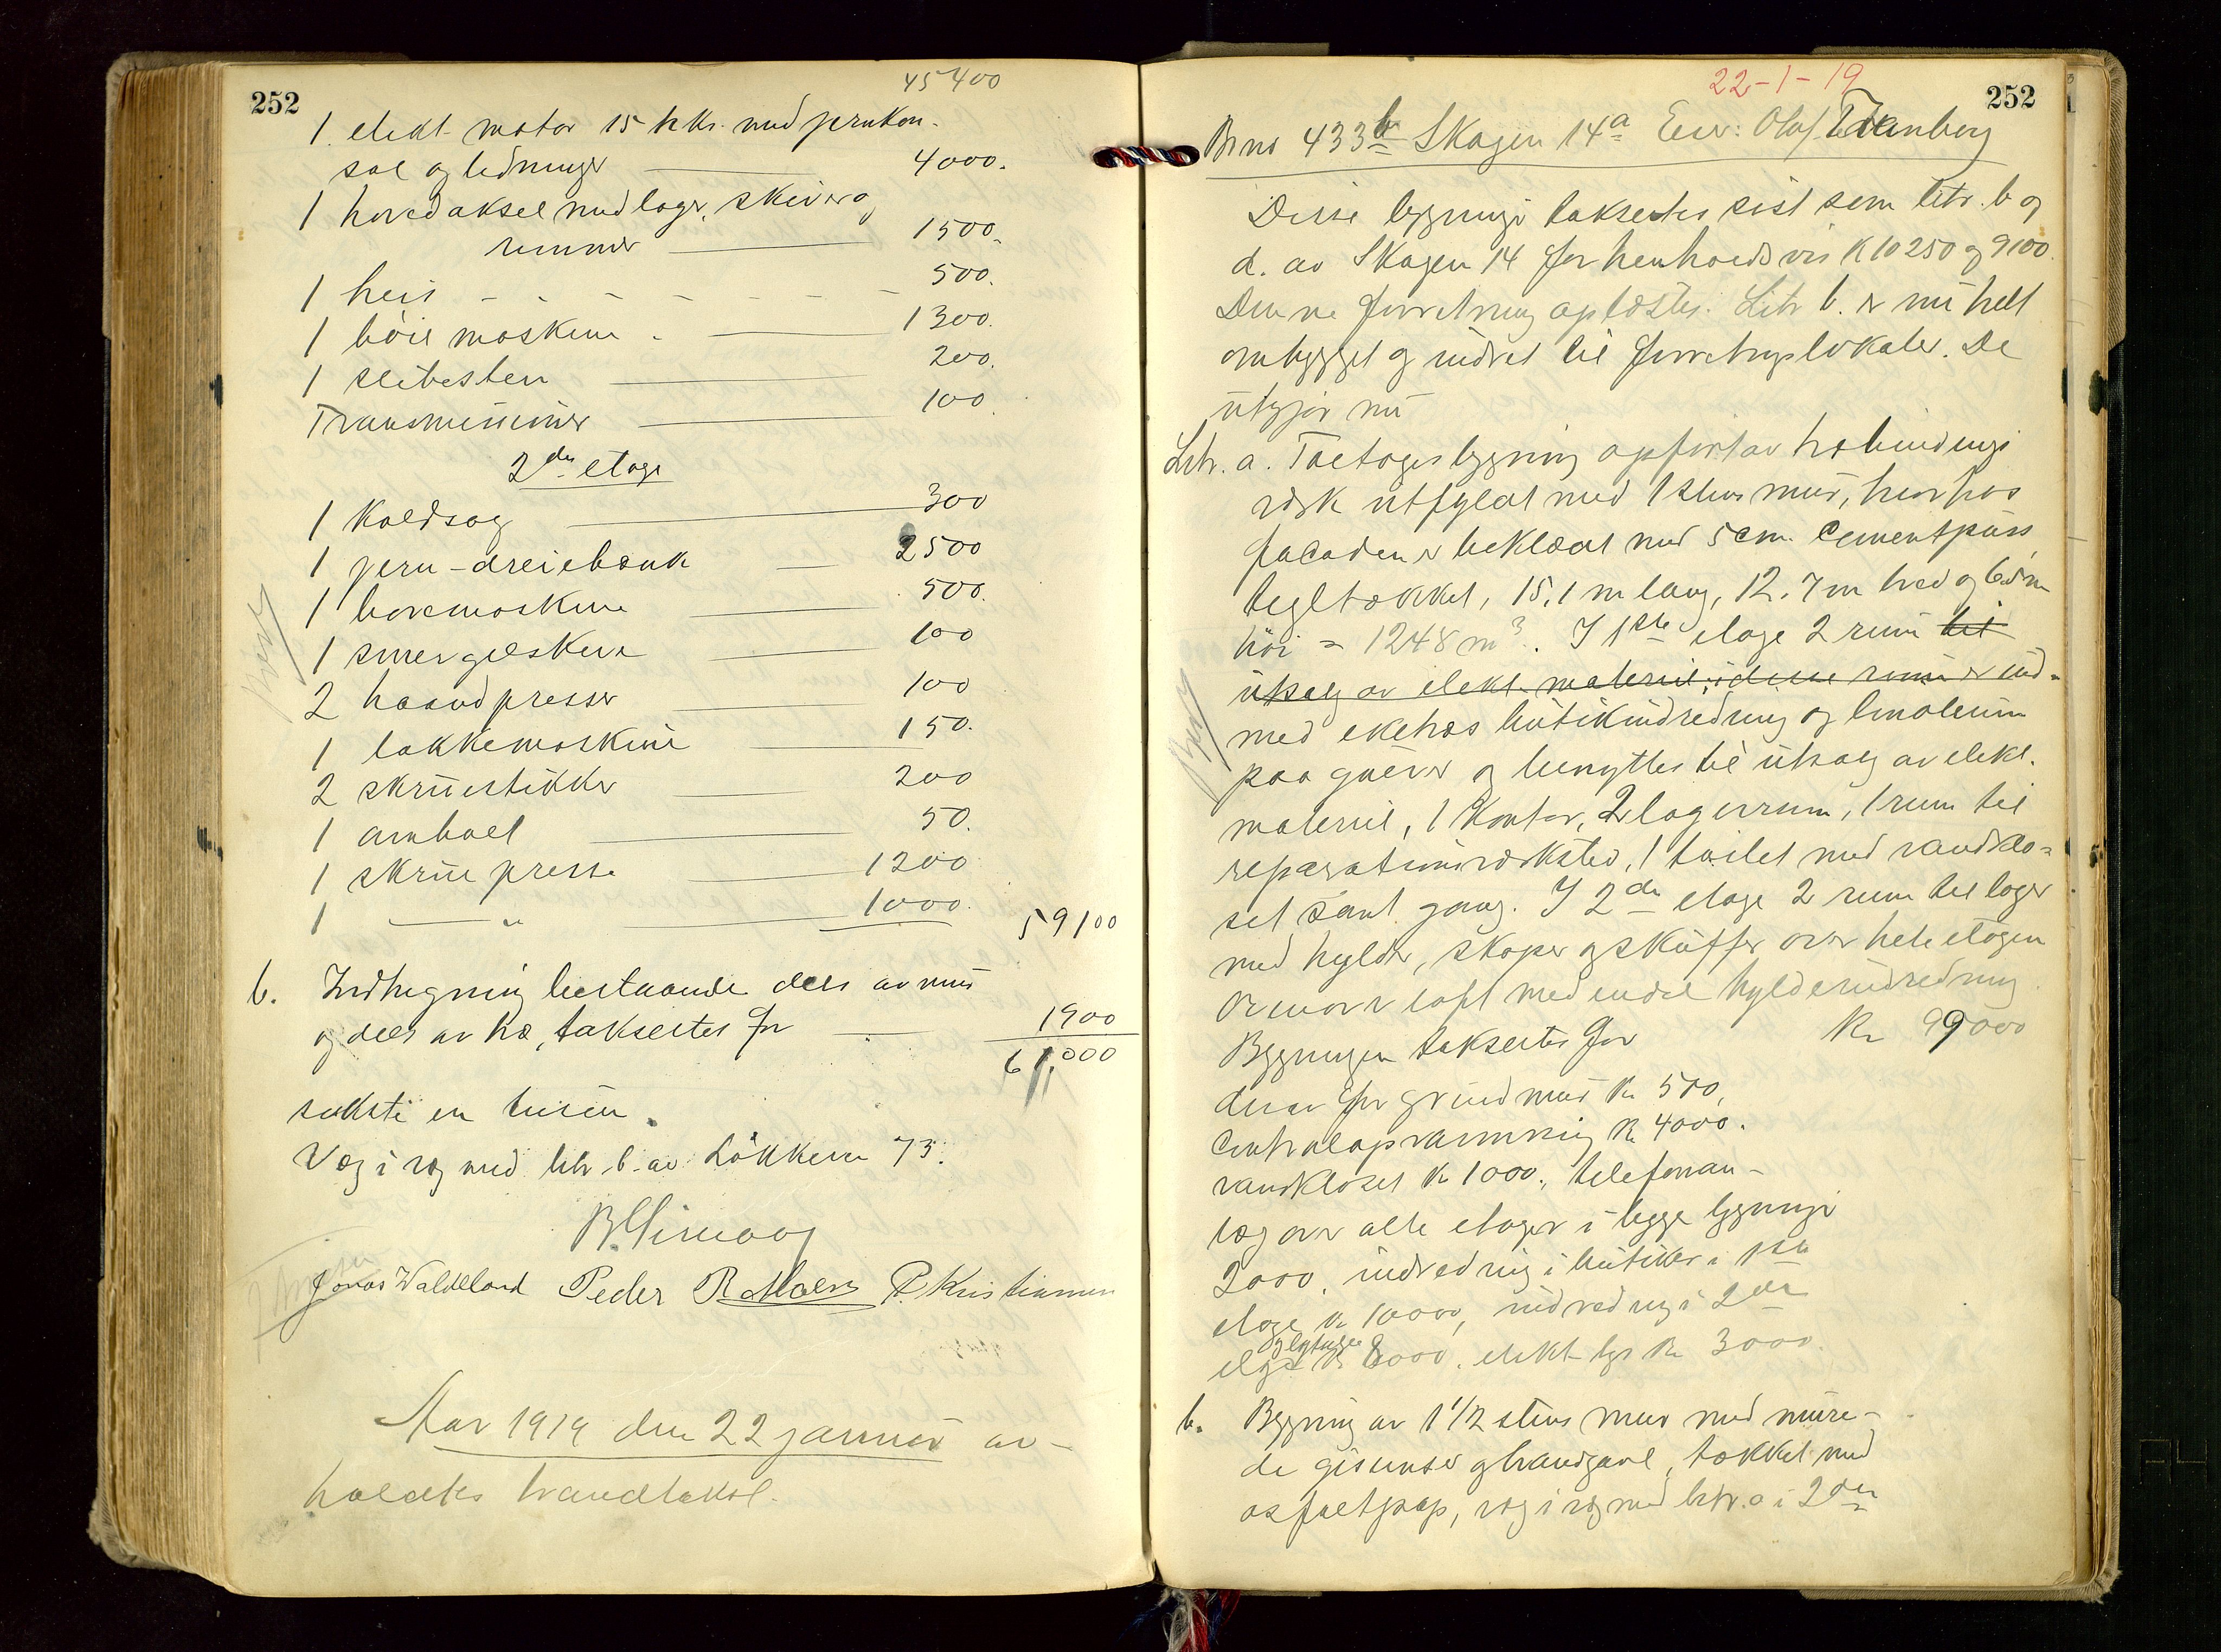 252
45400
1 elekt motor 15 hkr. med prekon-
sol og ledninger 4000.
1 hovedaksel med lager, skiver og
remmer 1500.
1 heis - - - - - - 500.
1 böiemaskine . 1300.
1 slibesten 200.
Transmissioner 100
2den etage
1 Koldsag 300
1 jern-dreiebænk 2500
1 boremaskine 500.
1 smergelskive 100
2 haandpresser 100
1 lakkemaskine 150.
2 skruestikker 200
1 ambolt 50.
1 skruepresse 1200
1 — " — 1000. 59100
b. Indhegning bestaaende dels av mur
og dels av træ, taksertes for 1900
61,000
seksti en tusen.
Væg i væg med litr. b. av Løkkeven 75.
Jonas Waldeland Peder R. Moen P. Kristiansen
Aar 1919 den 22 januar av-
holdtes brandtakst.
22-1-19
252
Br no 433b Skagen 14a Eier: Olaf Tranberg
Disse bygninger taksertes sist som litr. b og
d. av Skagen 14 for henholdsvis K 10250 og 9100.
Denne forretning oplæstes. Litr b. er nu helt
ombygget og indret til forretningslokaler. De
utgjør nu
Litr. a. Toetages bygning opført av træbindings
verk utfyldt med 1 stens mur, hvorhos
facaden er beklædt med 5 cm. Cementpuss,
tegltækket, 15,1 m lang, 12.7 m bred og 6.5 m
höi = 1248 m3. I 1ste etage 2 rum til
utsalg av elekt. materiel, i disse rum er ind-
med eketræs butikindredning og linoleum
paa gulver og benyttes til utsalg av elekt.
materiel, 1 Kontor, 2 lagerrum, 1 rum til
reparationsverksted, 1 toilet med vandklo-
set samt gang. I 2den etage 2 rum til lager
med hylder, skaper og skuffer over hele etagen
Ovenover loft med endel hylderindredning.
Bygningen taksertes for Kr 99000
derav for grundmur Kr 500,
Centralopvarmning Kr 4000.
vandkloset Kr 1000., telefonan-
læg over alle etager i begge bygninger
2000, indredning i butikker i 1ste
etage Kr 10000, indredning i 2den
etage Kr 8000. elekt lys Kr 3000.
b. Bygning av 1 1/2 stens mur med mure-
de gesimser og brandgavl, tækket med
asfaltpap, væg i væg med litr. a i 2den